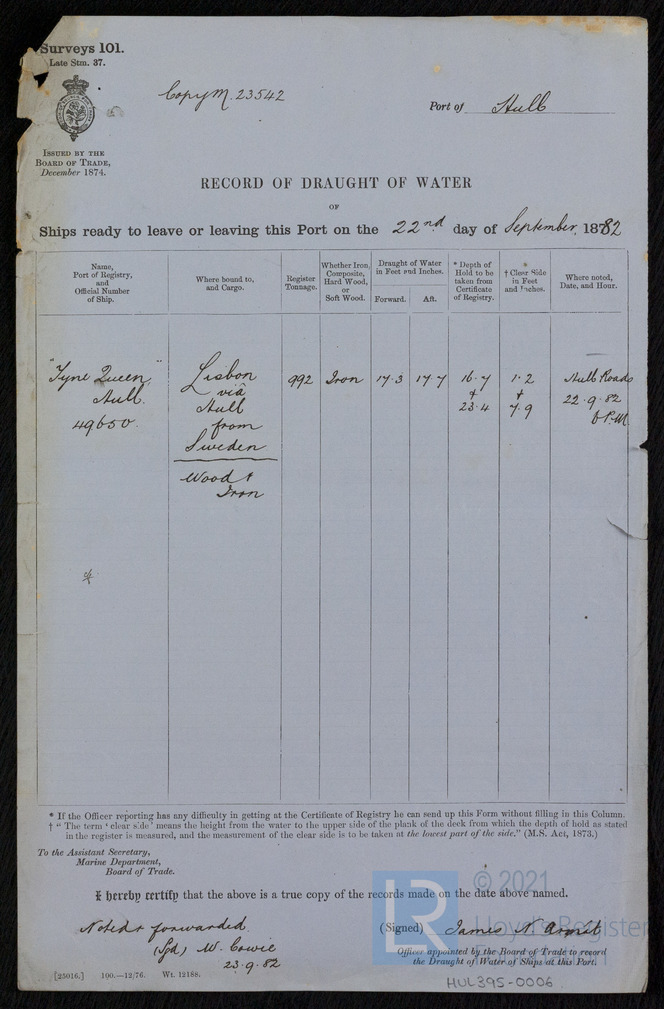 Surveys 101.
Late Stm. 37.
Copy M. 23542
Port of Hull
ISSUED BY THE
BOARD OF TRADE,
December 1874.
RECORD OF DRAUGHT OF WATER
OF
Ships ready to leave or leaving this Port on the 22nd day of September, 1882
Name,
Port of Registry,
and
Official Number
of Ship.
Where bound to,
and Cargo.
Register
Tonnage.
Whether Iron,
Composite,
Hard Wood,
or
Soft Wood.
Draught of Water
in Feet and Inches.
Forward.
Aft.
* Depth of
Hold to be
taken from
Certificate
of Registry.
† Clear Side
in Feet
and Inches.
Where noted,
Date, and Hour.
"Tyne Queen"
Hull.
49650.
Lisbon
via
Hull
from
Sweden
Wood &
Iron
992
Iron
17.3
17.7
16.7
&
23.4
1.2
&
7.9
Hull Roads
22.9.82
6 P.M.
* If the Officer reporting has any difficulty in getting at the Certificate of Registry he can send up this Form without filling in this Column.
† "The term 'clear side' means the height from the water to the upper side of the plank of the deck from which the depth of hold as stated
in the register is measured, and the measurement of the clear side is to be taken at the lowest part of the side." (M.S. Act, 1873.)
To the Assistant Secretary,
Marine Department,
Board of Trade.
I hereby certify that the above is a true copy of the records made on the date above named.
Noted & forwarded.
(Sgd) W. Cowie
23.9.82
(Signed) James N.
Officer appointed by the Board of Trade to record
the Draught of Water of Ships at this Port.
[25016.] 100.—12/76. Wt. 12188.
HUL395-0006
LR
© 2021
Lloyd's Register